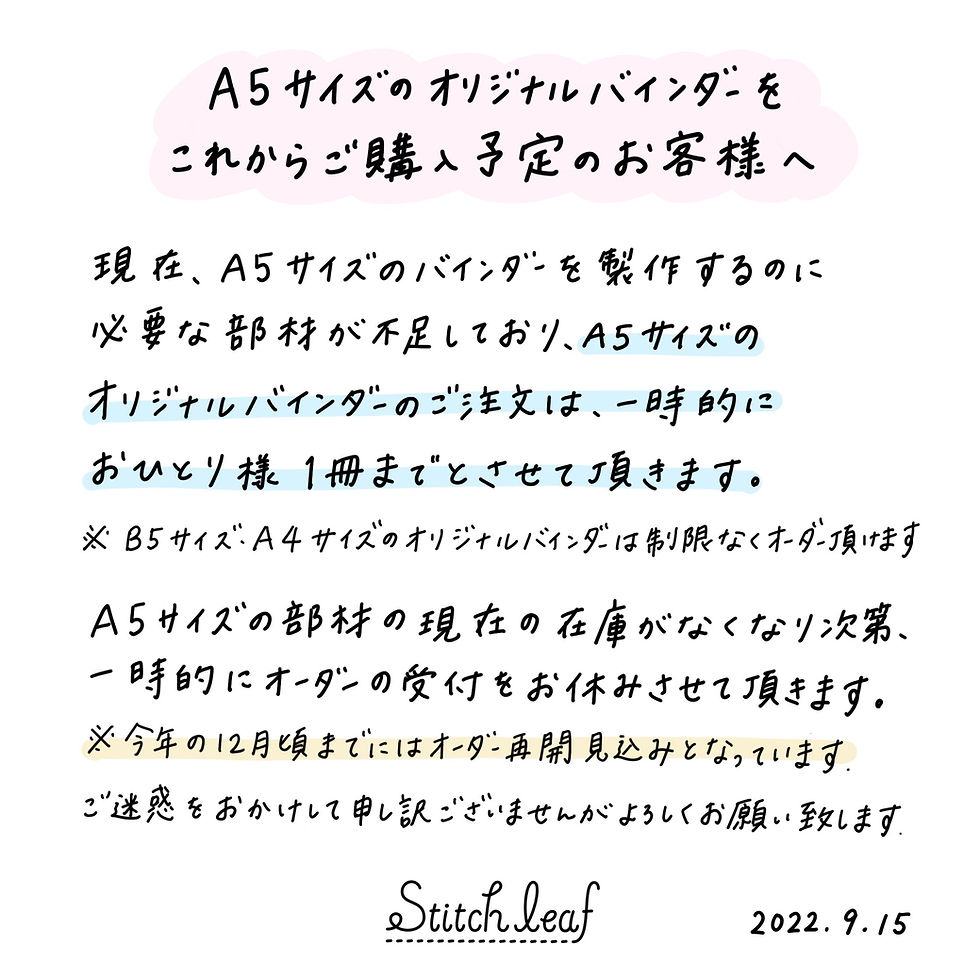 A5サイズのオリジナルバインダーを
これからご購入予定のお客様へ
現在、A5サイズのバインダーを製作するのに
必要な部材が不足しており、A5サイズの
オリジナルバインダーのご注文は、一時的に
おひとり様 1冊までとさせて頂きます。
※ B5サイズ・A4サイズのオリジナルバインダーは制限なくオーダー頂けます
A5サイズの部材の現在の在庫がなくなり次第、
一時的にオーダーの受付をお休みさせて頂きます。
※今年の12月頃までにはオーダー再開見込みとなっています.
ご迷惑をおかけして申し訳ございませんがよろしくお願い致します.
Stitch leaf
2022.9.15